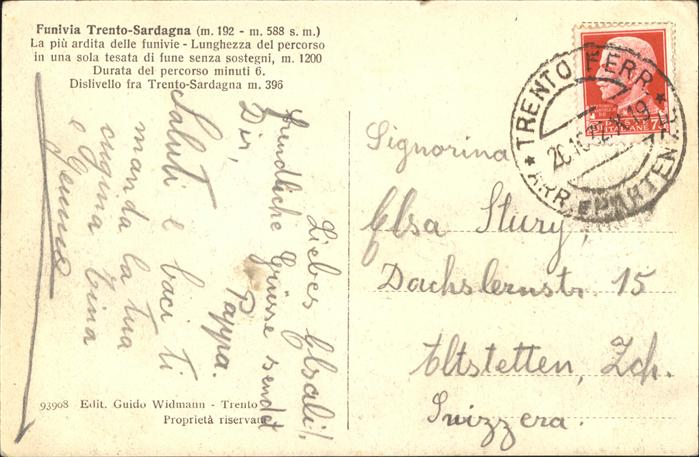 Funivia Trento-Sardagna (m. 192 - m. 588 s. m.)
La più ardita delle funivie - Lunghezza del percorso
in una sola tesata di fune senza sostegni, m. 1200
Durata del percorso minuti 6.
Dislivello fra Trento-Sardagna m. 396
Liebes Elsali!
Freundliche Grüsse sendet
Dir, Pappa.
Saluti e baci ti
manda la tua
cugina Gina
e Gemma
93908 Edit. Guido Widmann - Trento
Proprietà riservata
TRENTO FERR.
ARR. E PARTENZA
POSTE ITALIANE 75
Signorina
Elsa Stury,
Dachslernstr. 15
Altstetten, Zch.
Svizzera.